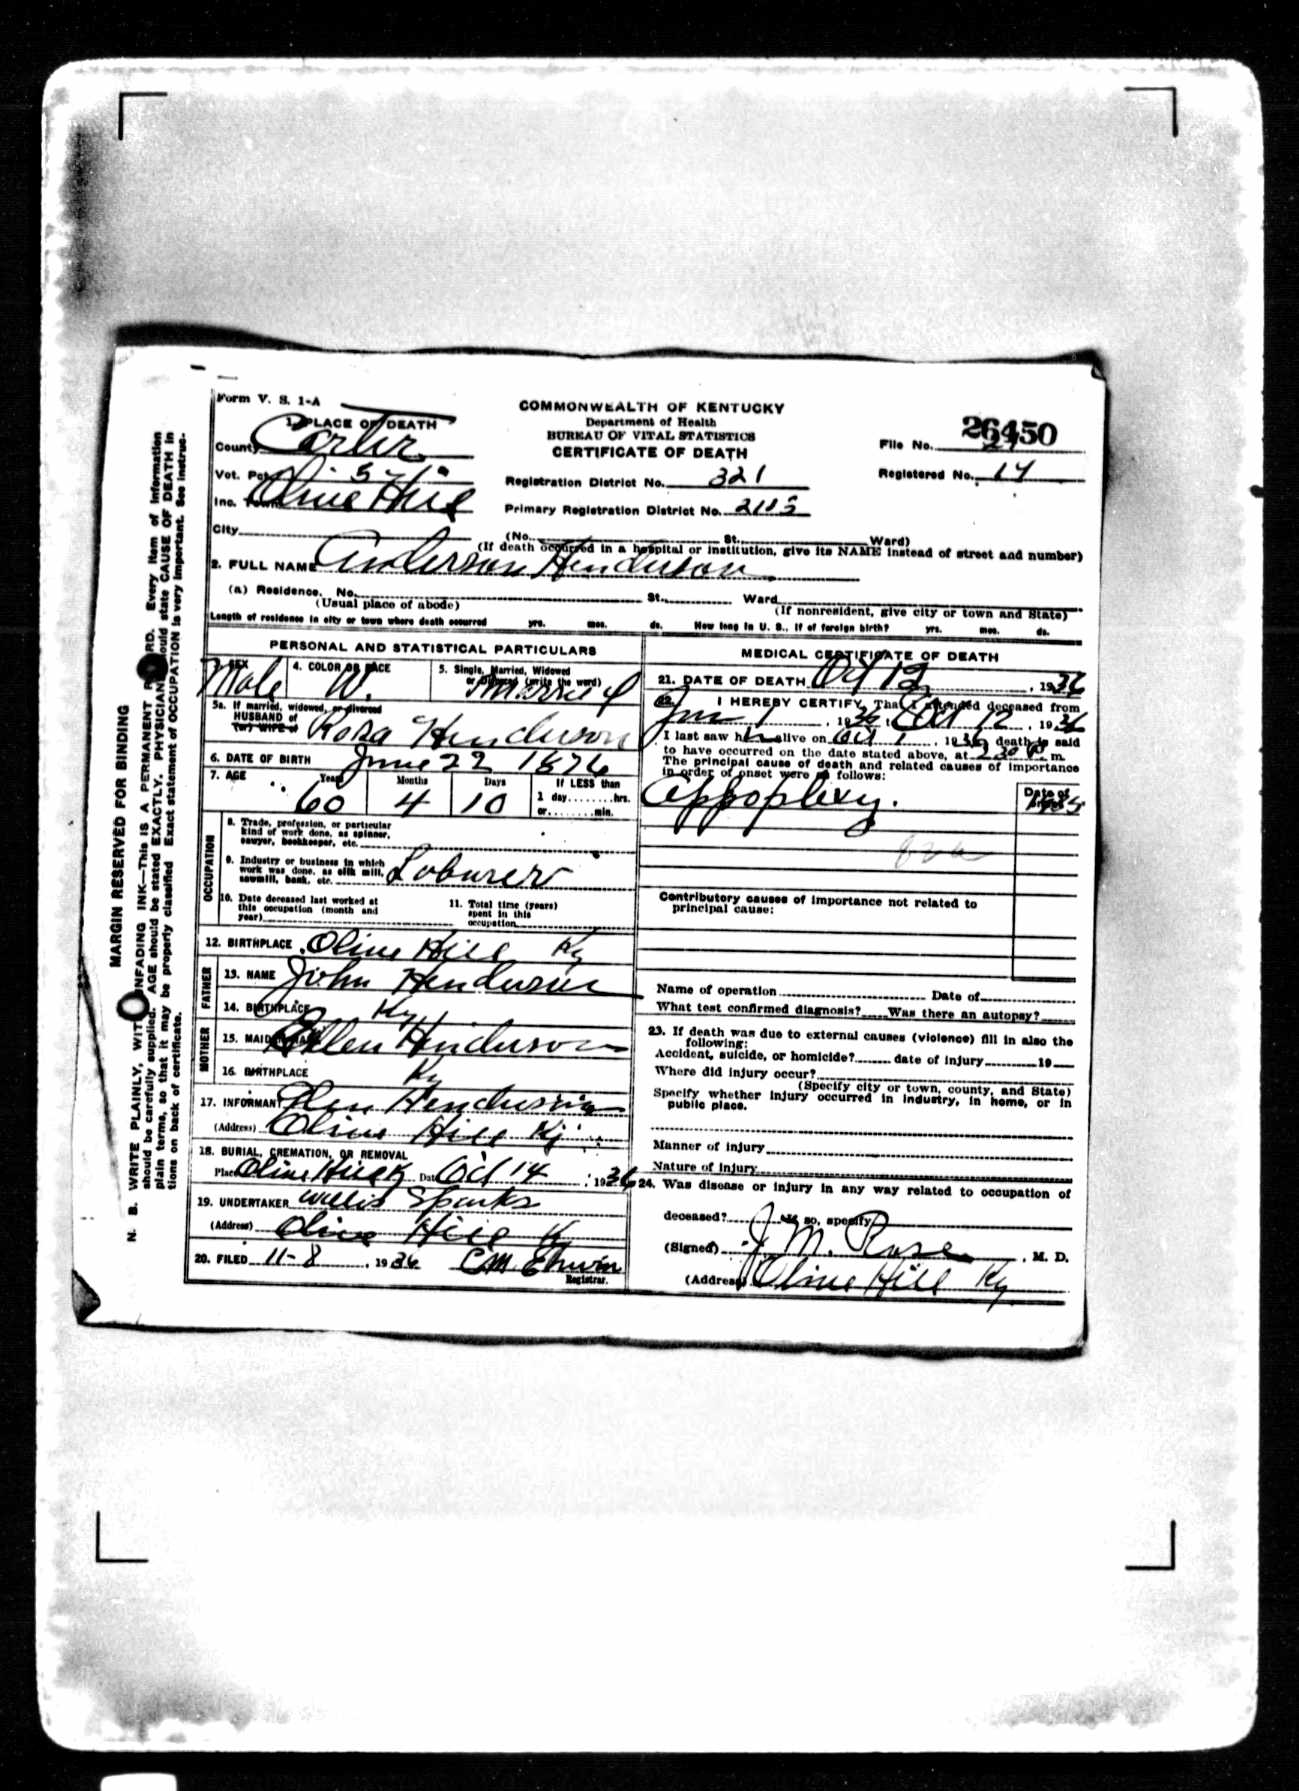 Form V. S. 1-A
COMMONWEALTH OF KENTUCKY
Department of Health
BUREAU OF VITAL STATISTICS
CERTIFICATE OF DEATH
1. PLACE OF DEATH
County Carter
Vot. Pct.
Inc. Town Olive Hill
City
File No. 26450
21
Registered No. 14
Registration District No. 321
Primary Registration District No. 2115
(No. St. Ward)
(If death occurred in a hospital or institution, give its NAME instead of street and number)
2. FULL NAME Anderson Henderson
(a) Residence. No. St. Ward
(Usual place of abode) (If nonresident, give city or town and State)
Length of residence in city or town where death occurred yrs. mos. ds. How long in U. S., if of foreign birth? yrs. mos. ds.
PERSONAL AND STATISTICAL PARTICULARS
SEX Male
4. COLOR OR RACE W.
5. Single, Married, Widowed or Divorced (write the word) Married
5a. If married, widowed, or divorced
HUSBAND of
(or) WIFE of Rosa Henderson
6. DATE OF BIRTH June 22 1876
7. AGE Years 60 Months 4 Days 10 If LESS than
1 day........hrs.
or........min.
OCCUPATION
8. Trade, profession, or particular
kind of work done, as spinner,
sawyer, bookkeeper, etc.
9. Industry or business in which
work was done, as silk mill,
sawmill, bank, etc. Laburer
10. Date deceased last worked at
this occupation (month and
year)
11. Total time (years)
spent in this
occupation
12. BIRTHPLACE Olive Hill Ky
FATHER
13. NAME John Henderson
14. BIRTHPLACE Ky
MOTHER
15. MAIDEN NAME Ellen Henderson
16. BIRTHPLACE Ky
17. INFORMANT Henderson
(Address) Olive Hill Ky
18. BURIAL, CREMATION, OR REMOVAL
Place Olive Hill K Date Oct 14, 1936
19. UNDERTAKER Willis Sparks
(Address) Olive Hill Ky
20. FILED 11-8, 1936 C.M. Erwin
Registrar.
MEDICAL CERTIFICATE OF DEATH
21. DATE OF DEATH Oct 12, 1936
22. I HEREBY CERTIFY, That I attended deceased from
Jun 1, 1936, Oct 12, 1936
I last saw him alive on Oct 1, 1936, death is said
to have occurred on the date stated above, at 2:30 P. m.
The principal cause of death and related causes of importance
in order of onset were as follows:
Date of onset
Appoplexy. 1935
Contributory causes of importance not related to
principal cause:
Name of operation Date of
What test confirmed diagnosis? Was there an autopsy?
23. If death was due to external causes (violence) fill in also the
following:
Accident, suicide, or homicide? date of injury 19
Where did injury occur?
(Specify city or town, county, and State)
Specify whether injury occurred in industry, in home, or in
public place.
Manner of injury
Nature of injury
24. Was disease or injury in any way related to occupation of
deceased? If so, specify
(Signed) J. M. Rose, M. D.
(Address) Olive Hill Ky
MARGIN RESERVED FOR BINDING
N. B. WRITE PLAINLY, WITH UNFADING INK—THIS IS A PERMANENT RECORD. Every item of information
should be carefully supplied. AGE should be stated EXACTLY. PHYSICIANS should state CAUSE OF DEATH in
plain terms, so that it may be properly classified. Exact statement of OCCUPATION is very important. See instruc-
tions on back of certificate.